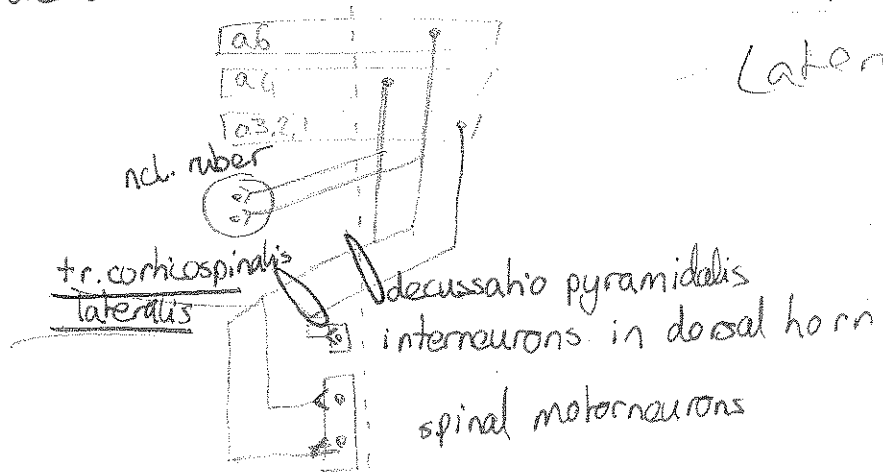 a6
a4
a3,2,1
ncl. ruber
tr. corticospinalis
lateralis
decussatio pyramidalis
interneurons in dorsal horn
spinal motorneurons